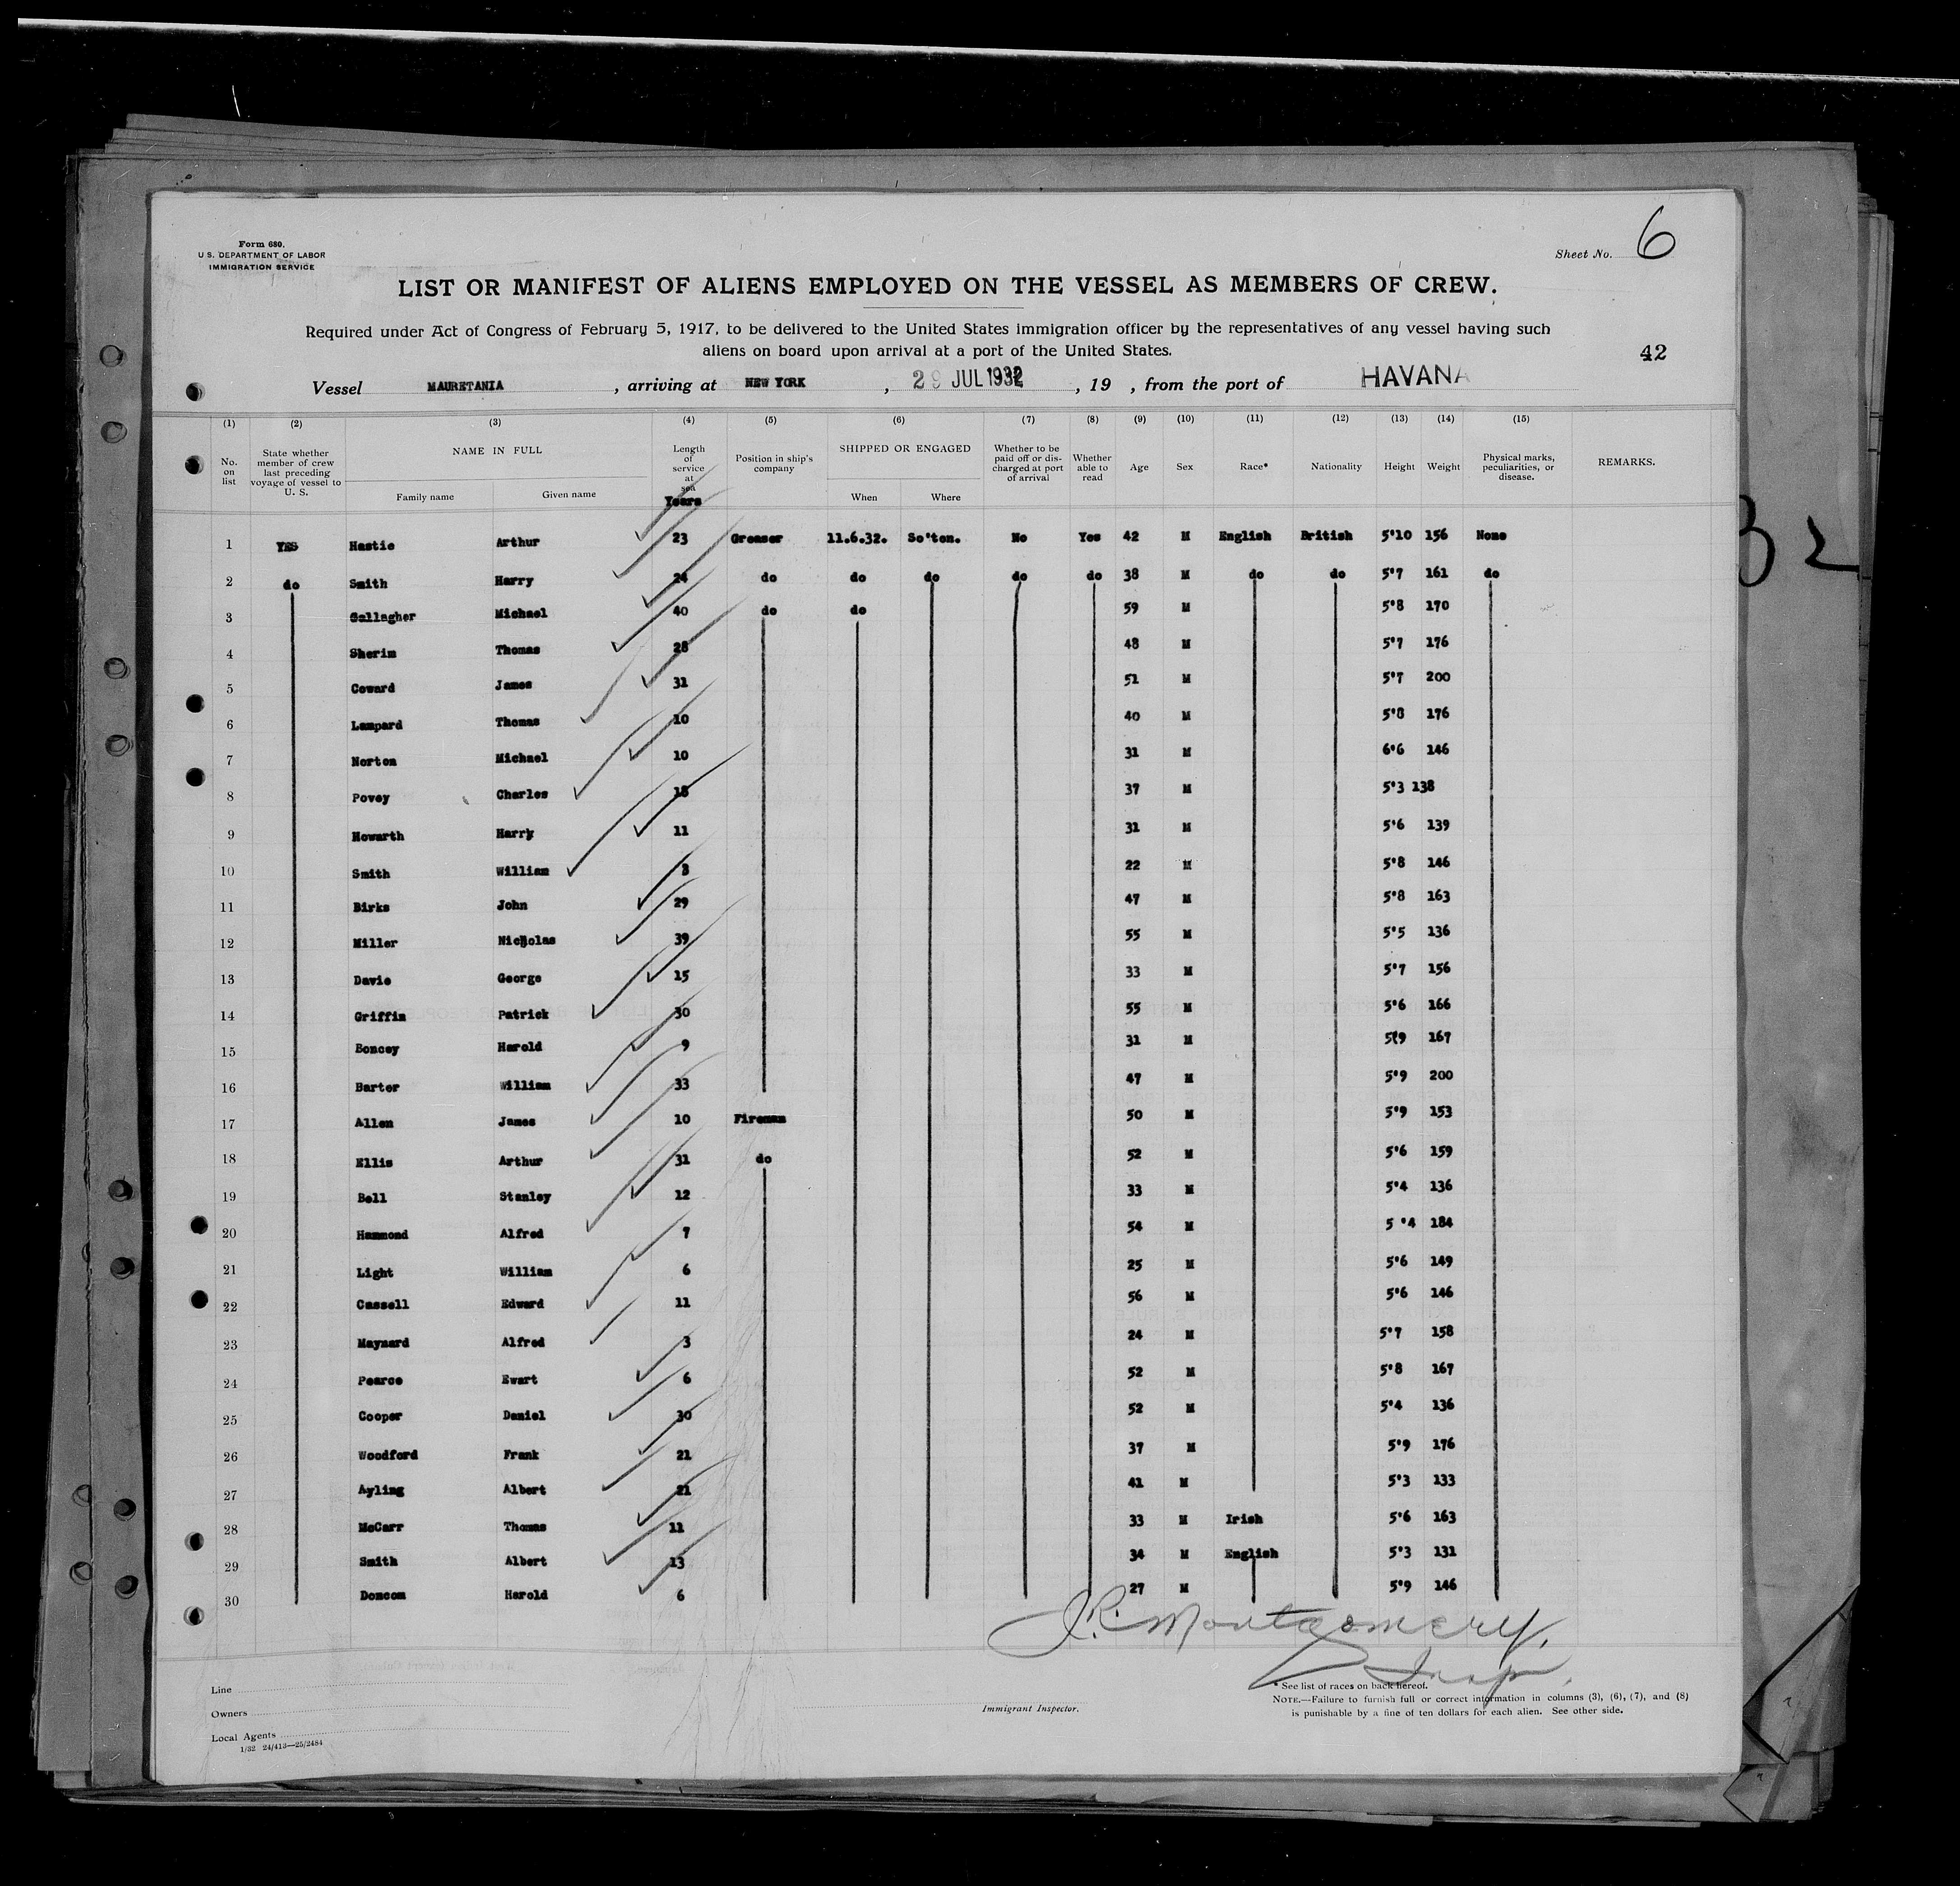 Form 680.
U.S. DEPARTMENT OF LABOR
IMMIGRATION SERVICE
Sheet No. 6
LIST OR MANIFEST OF ALIENS EMPLOYED ON THE VESSEL AS MEMBERS OF CREW.
Required under Act of Congress of February 5, 1917, to be delivered to the United States immigration officer by the representatives of any vessel having such
aliens on board upon arrival at a port of the United States.
42
Vessel MAURETANIA, arriving at NEW YORK, 29 JUL 1932, 19 , from the port of HAVANA
(1) (2) (3) (4) (5) (6) (7) (8) (9) (10) (11) (12) (13) (14) (15)
No. on list | State whether member of crew last preceding voyage of vessel to U. S. | NAME IN FULL | Family name | Given name | Length of service at sea Years | Position in ship's company | SHIPPED OR ENGAGED | When | Where | Whether to be paid off or discharged at port of arrival | Whether able to read | Age | Sex | Race* | Nationality | Height | Weight | Physical marks, peculiarities, or disease. | REMARKS.
1 YES Hastie Arthur 23 Greaser 11.6.32. So'ton. No Yes 42 M English British 5'10 156 None
2 do Smith Harry 24 do do do do do 38 M do do 5'7 161 do
3 Gallagher Michael 40 do do 59 M 5'8 170
4 Sherin Thomas 28 48 M 5'7 176
5 Coward James 31 51 M 5'7 200
6 Lampard Thomas 10 40 M 5'8 176
7 Norton Michael 10 31 M 6'6 146
8 Povey Charles 18 37 M 5'3 138
9 Howarth Harry 11 31 M 5'6 139
10 Smith William 3 22 M 5'8 146
11 Birks John 29 47 M 5'8 163
12 Miller Nicholas 39 55 M 5'5 136
13 Davie George 15 33 M 5'7 156
14 Griffin Patrick 30 55 M 5'6 166
15 Boncey Harold 9 31 M 5'9 167
16 Barter William 33 47 M 5'9 200
17 Allen James 10 Fireman 50 M 5'9 153
18 Ellis Arthur 31 do 52 M 5'6 159
19 Bell Stanley 12 33 M 5'4 136
20 Hammond Alfred 7 54 M 5 '4 184
21 Light William 6 25 M 5'6 149
22 Cassell Edward 11 56 M 5'6 146
23 Maynard Alfred 3 24 M 5'7 158
24 Pearce Ewart 6 52 M 5'8 167
25 Cooper Daniel 30 52 M 5'4 136
26 Woodford Frank 21 37 M 5'9 176
27 Ayling Albert 21 41 M 5'3 133
28 McCarr Thomas 11 33 M Irish 5'6 163
29 Smith Albert 13 34 M English 5'3 131
30 Doncom Harold 6 27 M 5'9 146
J.R. Montgomery.
Insp.
Line
Owners
Local Agents
1/32 24/413—25/2484
Immigrant Inspector.
* See list of races on back hereof.
NOTE.—Failure to furnish full or correct information in columns (3), (6), (7), and (8)
is punishable by a fine of ten dollars for each alien. See other side.